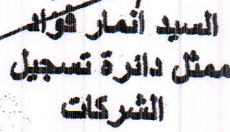 السيد أنمار فؤاد
ممثل دائرة تسجيل
الشركات